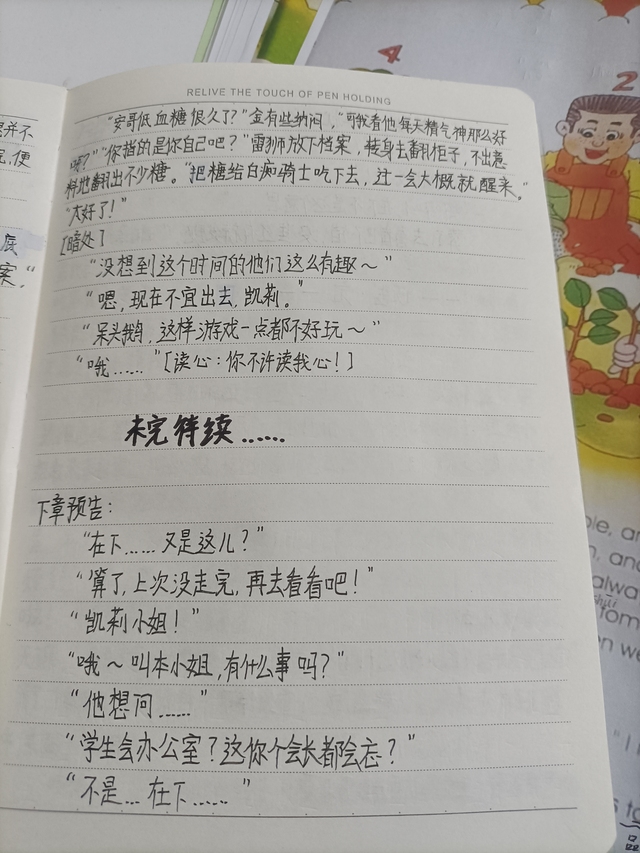 RELIVE THE TOUCH OF PEN HOLDING
“安哥低血糖很久了?”金有些纳闷,“可我看他每天精气神那么好
呀?”“你指的是你自己吧?”雷狮放下档案,转身去翻柜子,不出意
料地翻出不少糖。“把糖给白痴骑士吃下去,过一会大概就醒来。”
“太好了!”
[暗处]
“没想到这个时间的他们这么有趣~”
“嗯,现在不宜出去,凯莉。”
“呆头鹅,这样游戏一点都不好玩~”
“哦……”[读心:你不许读我心!]
未完待续……
下章预告:
“在下……又是这儿?”
“算了,上次没走完,再去看看吧!”
“凯莉小姐!”
“哦~叫本小姐,有什么事吗?”
“他想问……”
“学生会办公室?这你个会长都会忘?”
“不是…在下……”
4
2